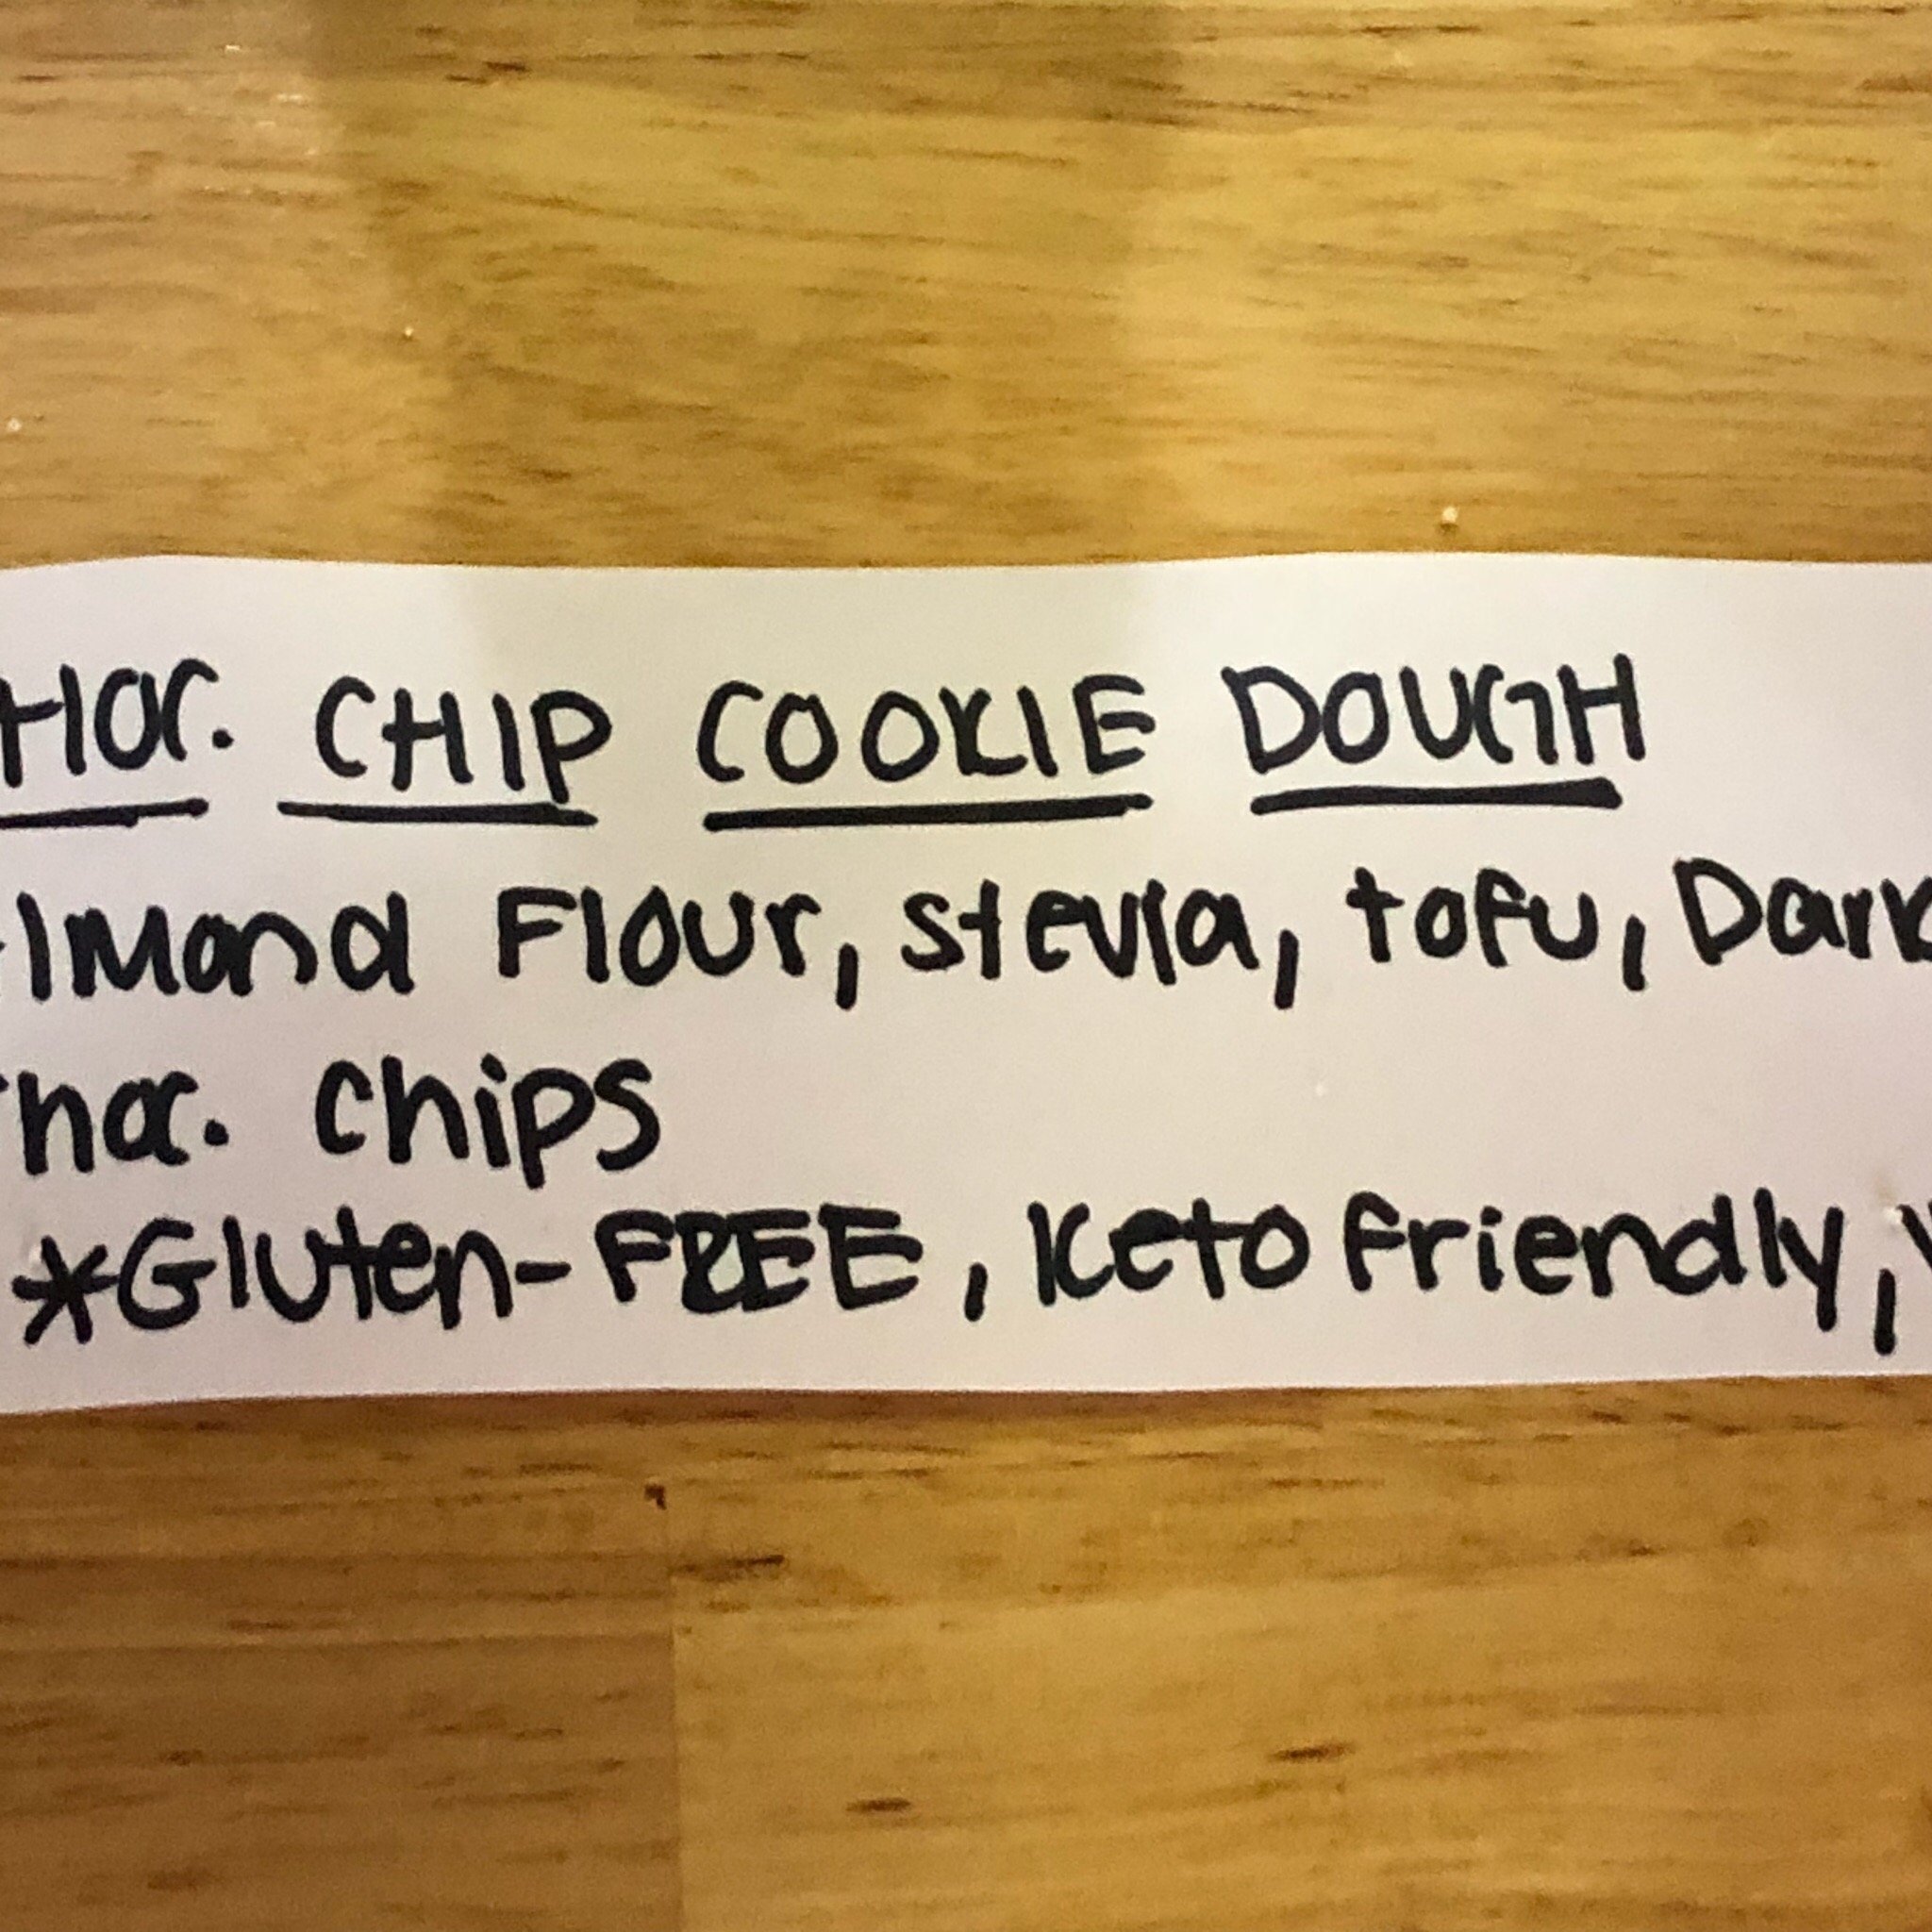 HOC. CHIP COOKIE DOUGH
lmond Flour, stevia, tofu, Dark
hoc. chips
*Gluten-FREE, Keto friendly,